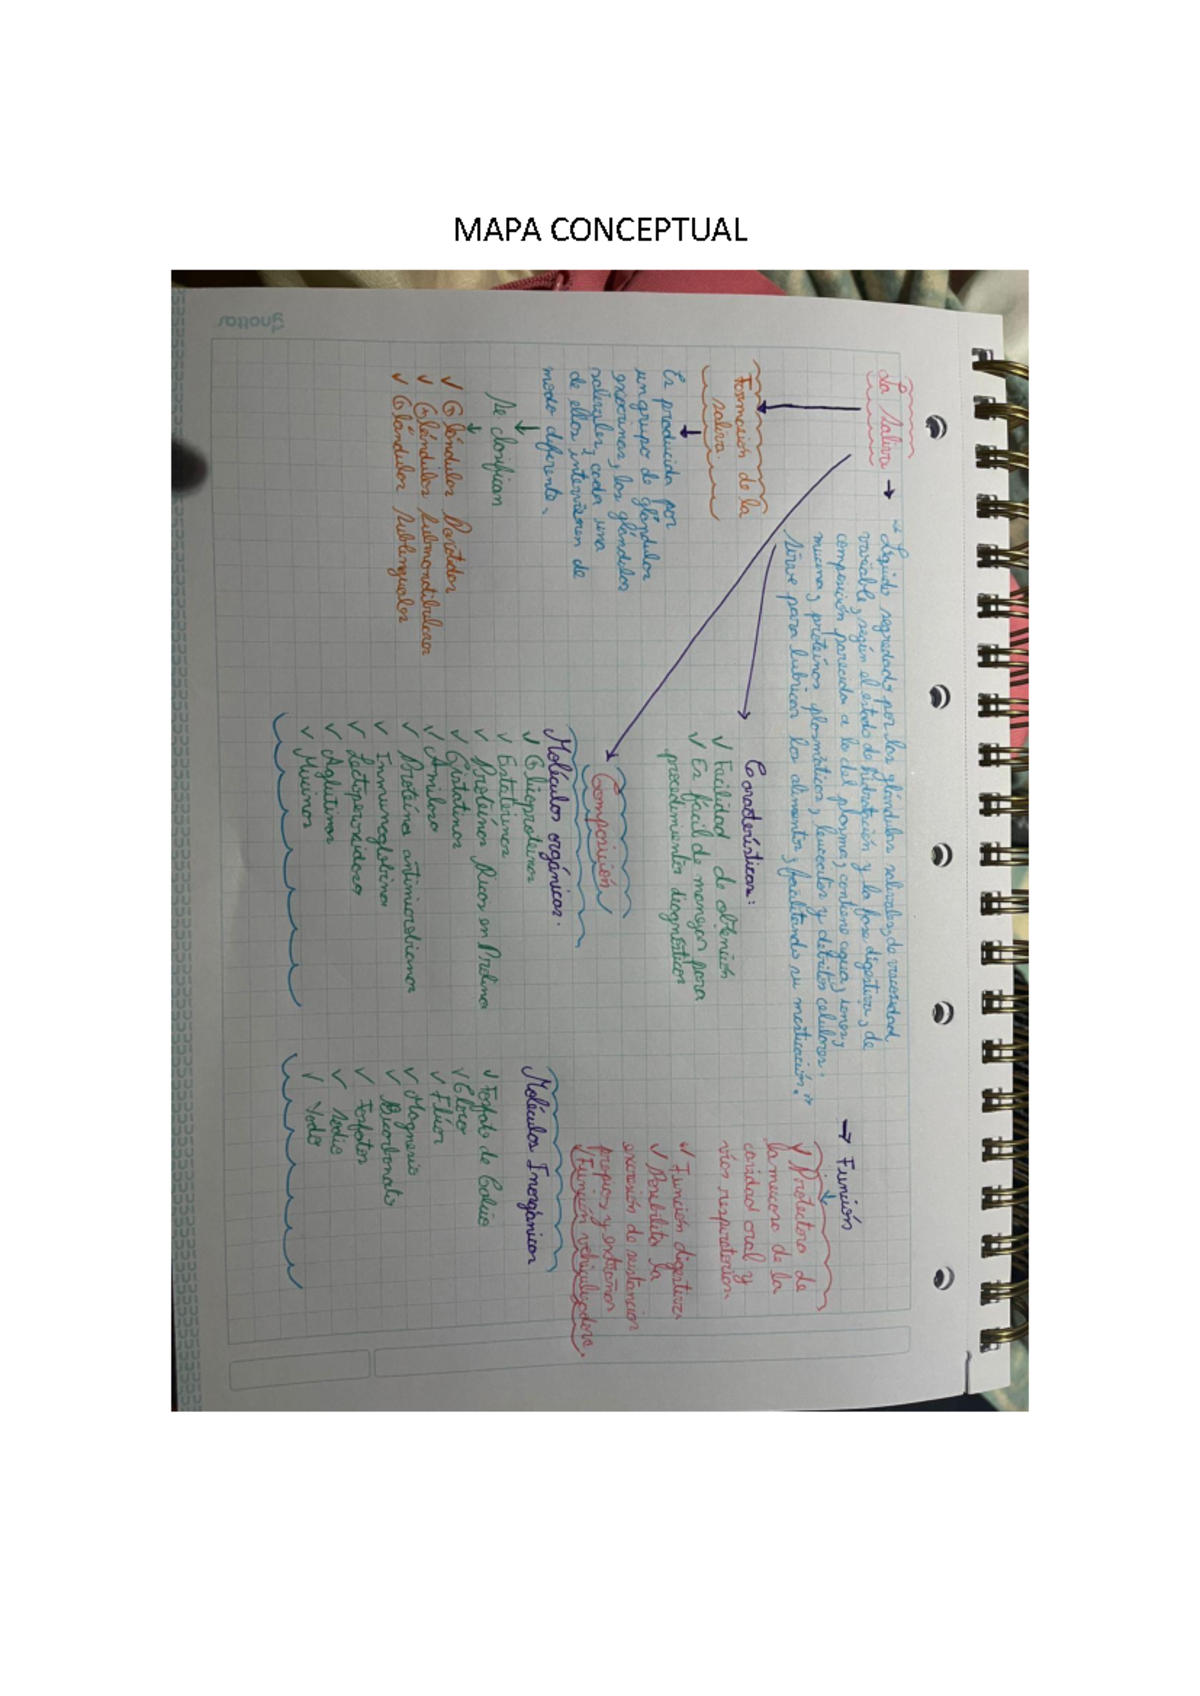 MAPA CONCEPTUAL
gnottas
La saliva →
"Líquido segredado por las glándulas salivales, de viscosidad
variable, según el estado de hidratación y la fase digestiva, de
composición parecida a la del plasma, contiene agua, iones,
mucina, proteínas plasmáticas, leucocitos y debitos celulares.
Sirve para lubricar los alimentos, facilitando su masticación."
→ Función
✓ Protectora de
la mucosa de la
cavidad oral y
vías respiratorias
✓ Función digestiva
✓ Posibilita la
excresión de sustancias
propias y extrañas
✓ Función vehiculizadora.
Formación de la
saliva.
Es producida por
un grupo de glándulas
exocrinas, las glándulas
salivales, cada una
de ellas intervienen de
modo diferente.
Se clasifican
✓ Glándulas Parotidas
✓ Glándulas Submandibulares
✓ Glándulas Sublinguales
Características:
✓ Facilidad de obtención
✓ Es fácil de manejar para
procedimientos diagnósticos
Composición
Moléculas orgánicas:
✓ Glicoproteinas
✓ Estaterinas
✓ Proteínas Ricas en Prolina
✓ Cistatinas
✓ Amilasa
✓ Proteína antimicrobianas
✓ Inmunoglobina
✓ Lactoperoxidasa
✓ Aglutinas
✓ Mucinas
Moléculas Inorgánicas
✓ Fosfato de Calcio
✓ Cloro
✓ Flúor
✓ Magnesio
✓ Bicarbonato
✓ Fosfatos
✓ sodio
✓ Yodo